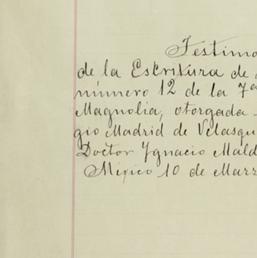 Testimo
de la Escritura de
número 12 de la 7a
Magnolia, otorgada
gio Madrid de Velasqu
Doctor Ygnacio Mald
México 10 de Marz